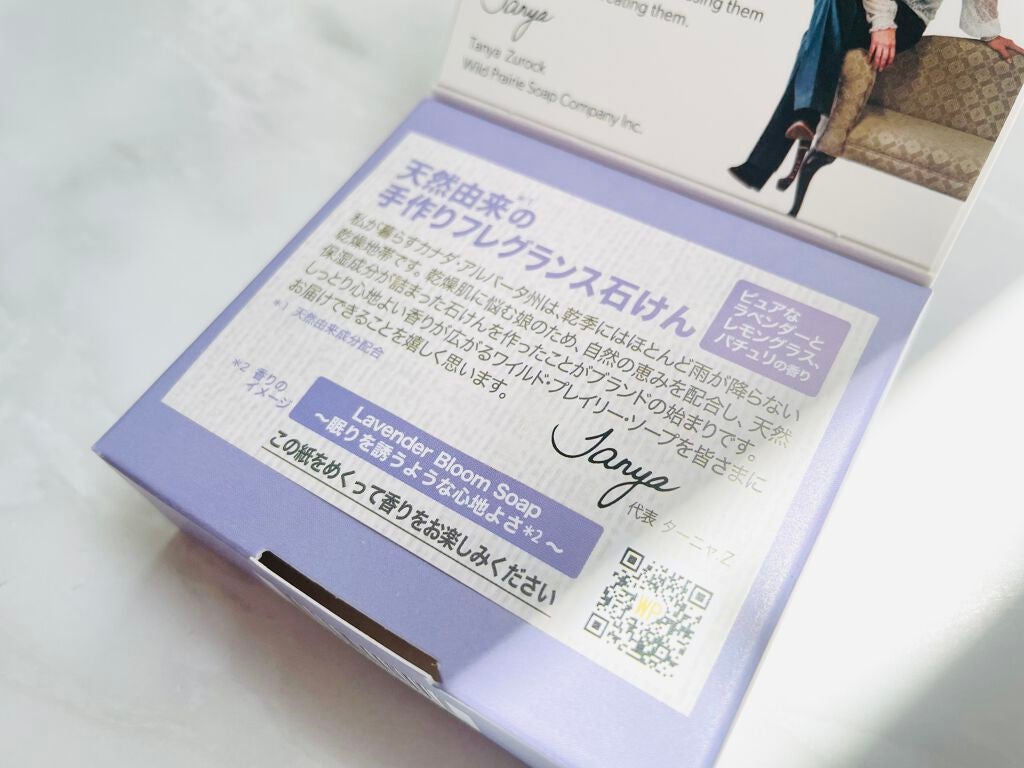 using them
eating them.
Tanya
Tanya Zurock
Wild Prairie Soap Company Inc.
天然由来の※1
手作りフレグランス石けん
ピュアな
ラベンダーと
レモングラス、
パチュリの香り
私が暮らすカナダ・アルバータ州は、乾季にはほとんど雨が降らない
乾燥地帯です。乾燥肌に悩む娘のため、自然の恵みを配合し、天然
保湿成分が詰まった石けんを作ったことがブランドの始まりです。
しっとり心地よい香りが広がるワイルド・プレイリー・ソープを皆さまに
お届けできることを嬉しく思います。
※1 天然由来成分配合
※2 香りの
イメージ
Tanya
代表 ターニャ.Z
Lavender Bloom Soap
～眠りを誘うような心地よさ※2～
この紙をめくって香りをお楽しみください
WP